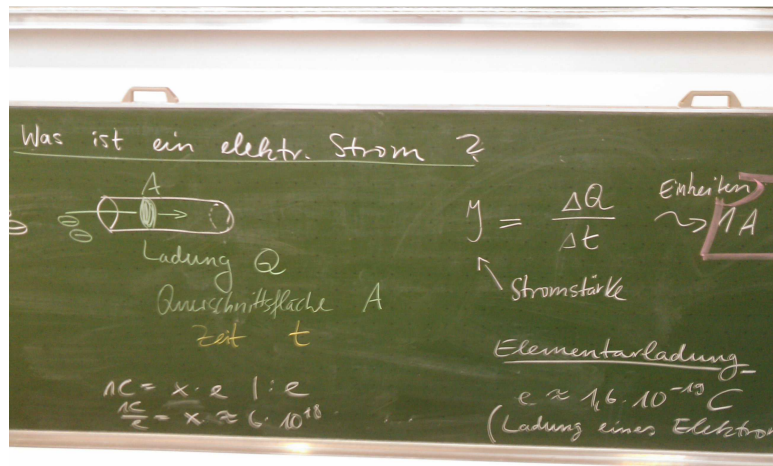 Was ist ein elektr. Strom ?
A
Ladung Q
Querschnittsfläche A
Zeit t
1C = x · e | : e
1C/e = x ≈ 6 · 10¹⁸ ...
J = ΔQ/Δt
Einheiten
1A
Stromstärke
Elementarladung
e ≈ 1,6 · 10⁻¹⁹ C
(Ladung eines Elektro